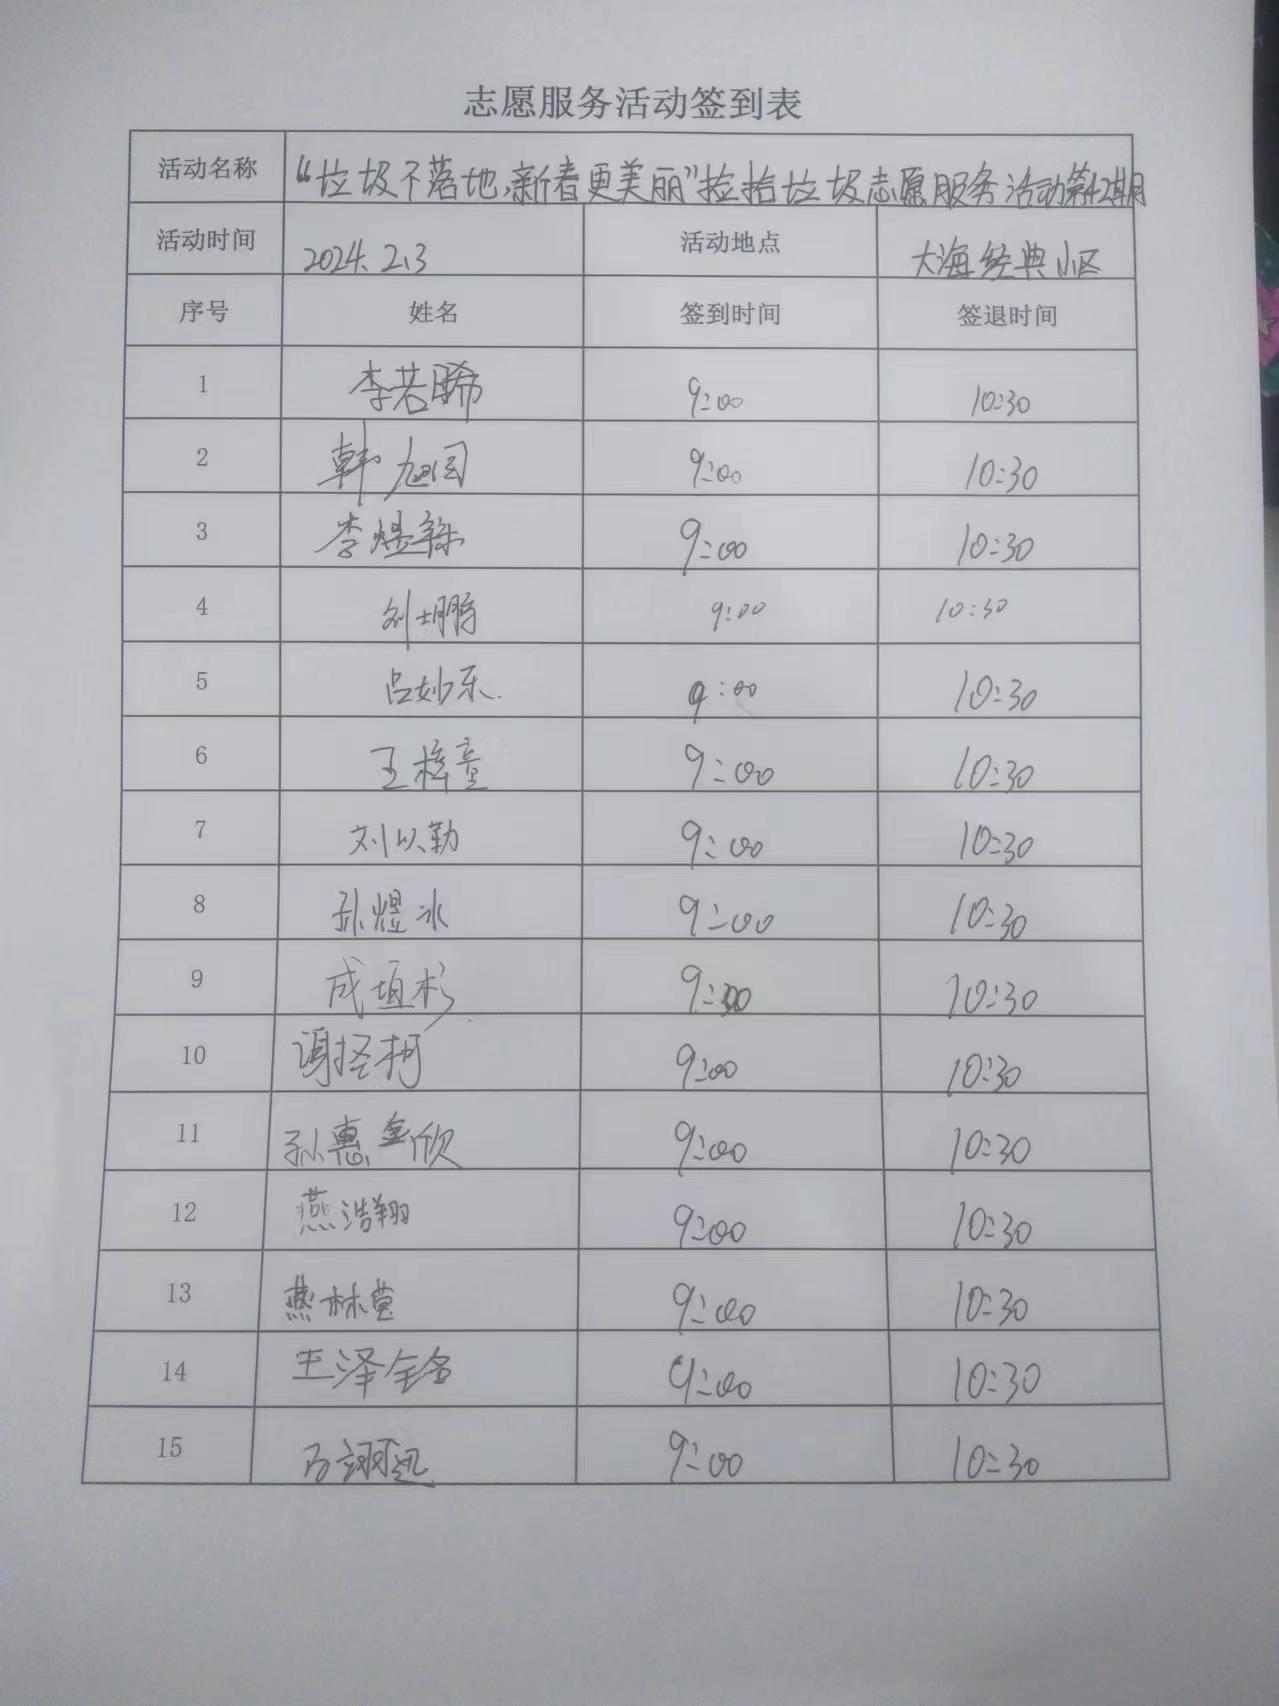 志愿服务活动签到表
活动名称 “垃圾不落地,新春更美丽”捡拾垃圾志愿服务活动第42期
活动时间 2024.2.3 活动地点 大海经典小区
序号 姓名 签到时间 签退时间
1 李若曦 9:00 10:30
2 韩旭 9:00 10:30
3 李煜 9:00 10:30
4 刘 9:00 10:30
5 吕妙乐 9:00 10:30
6 王梓童 9:00 10:30
7 刘以勤 9:00 10:30
8 孙煜冰 9:00 10:30
9 成垣杉 9:00 10:30
10 谢 9:00 10:30
11 孙惠欣 9:00 10:30
12 燕浩翔 9:00 10:30
13 燕林 9:00 10:30
14 王泽铭 9:00 10:30
15 9:00 10:30